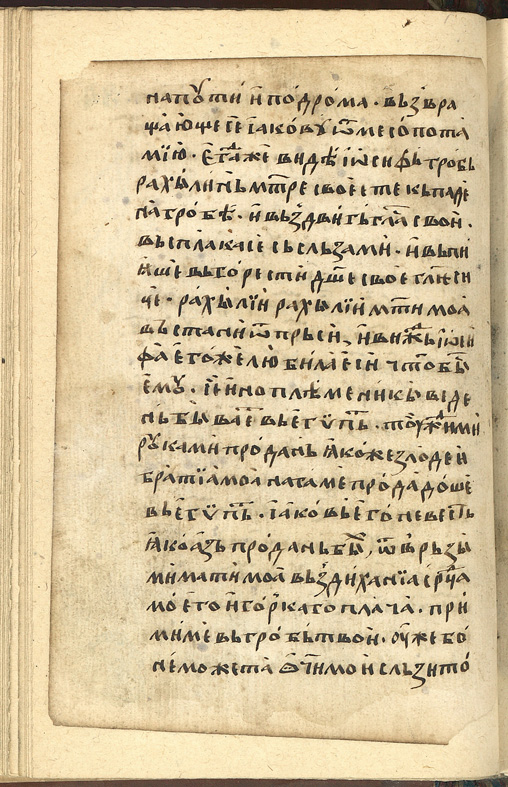 на поути и подрома · вьзвра
щающесе їаковꙋ ѿ месопота
мїю · егⷣаже видѣ їѡсифь гробь
рахилинь мт҃ре своее текь паде
на гробѣ · и вьздвигь гла свои ·
вьсплакасе сьсльзами · и вьпи
ꙗше вьгорести дш҃е своее гл҃ѥ си
це · рахилїи рахилїи мт҃и моа
вьстани ѿ прьси, и вижⷣь їѡси
фа егоже любила еси что бы
емꙋ · їеино племеникы веде
нь бываеⷮ вьегѵпть · тоужⷣими
рꙋками проданъ ꙗкоже злодеи
братїа моа нага ме продадоше
вьегѵпть · їаковь его не вѣсть
ꙗко азь продань бых, ѿврьзы
ми мати моа вьздиханїа срⷣца
моего и горкаго плача · при
ми ме вь гробь твои · оуже бо
не можета ѻчи мои сльзи то